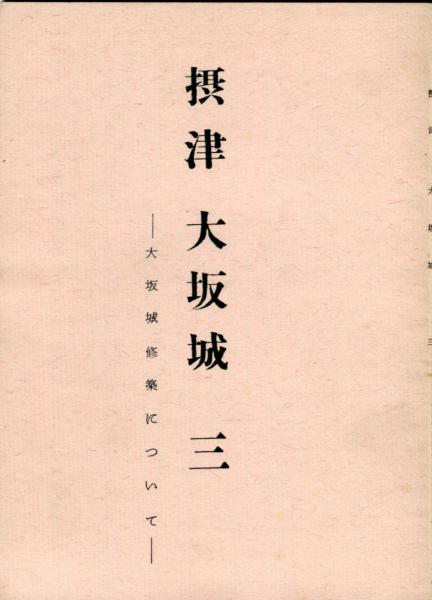 摂津 大坂城 三
―大坂城修築について―
摂津 大坂城 三